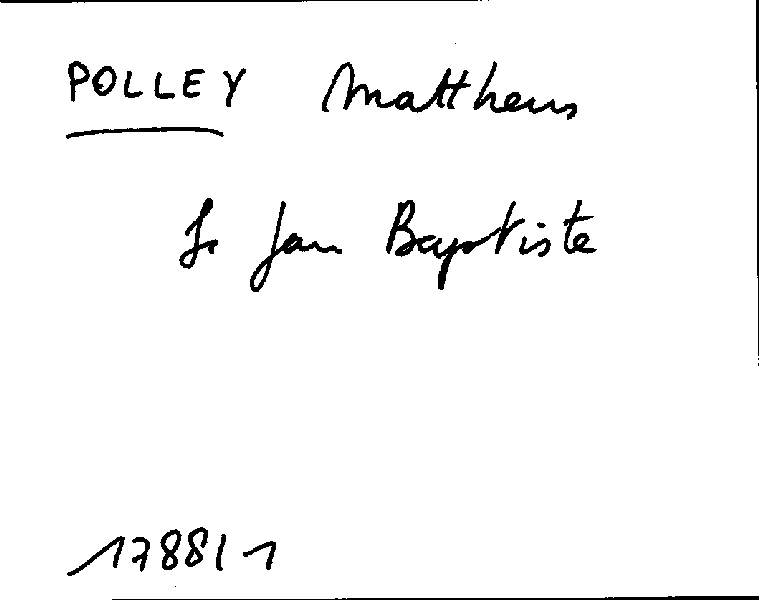 POLLEY Mattheus
fs Jan Baptiste
1788/1